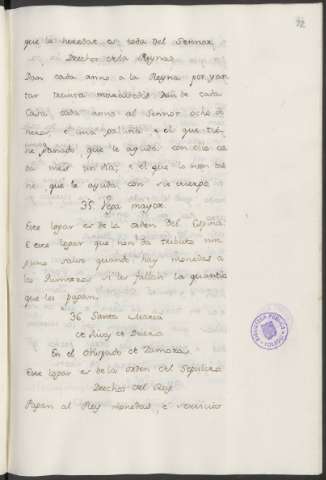 22
que la heredat es toda del Sennor.
Derechos de la Reyna.
Dan cada anno a la Reyna por yan
tar treinta maravedis. Dan de cada
Casa cada anno al Sennor ocho di
neros, e una gallina e el que tie
ne ganado, que le ayuda con ello ca
da mes un dia; e el que la non tie
ne, que le ayuda con su cuerpo
35 Pepa mayor.
Este logar es de la orden del Espina.
E este logar que non da tributo nin
guno salvo quando hay monedas a
los fumazos si les fallan la quantia
que les pagan.
36 Santa Maria
de Rivo de Duero
En el Obispado de Zamora
Este logar es de la orden del Sepulcro
Derechos del Rey
Pagan al Rey monedas, e servicios
BIBLIOTECA PUBLICA
TOLEDO